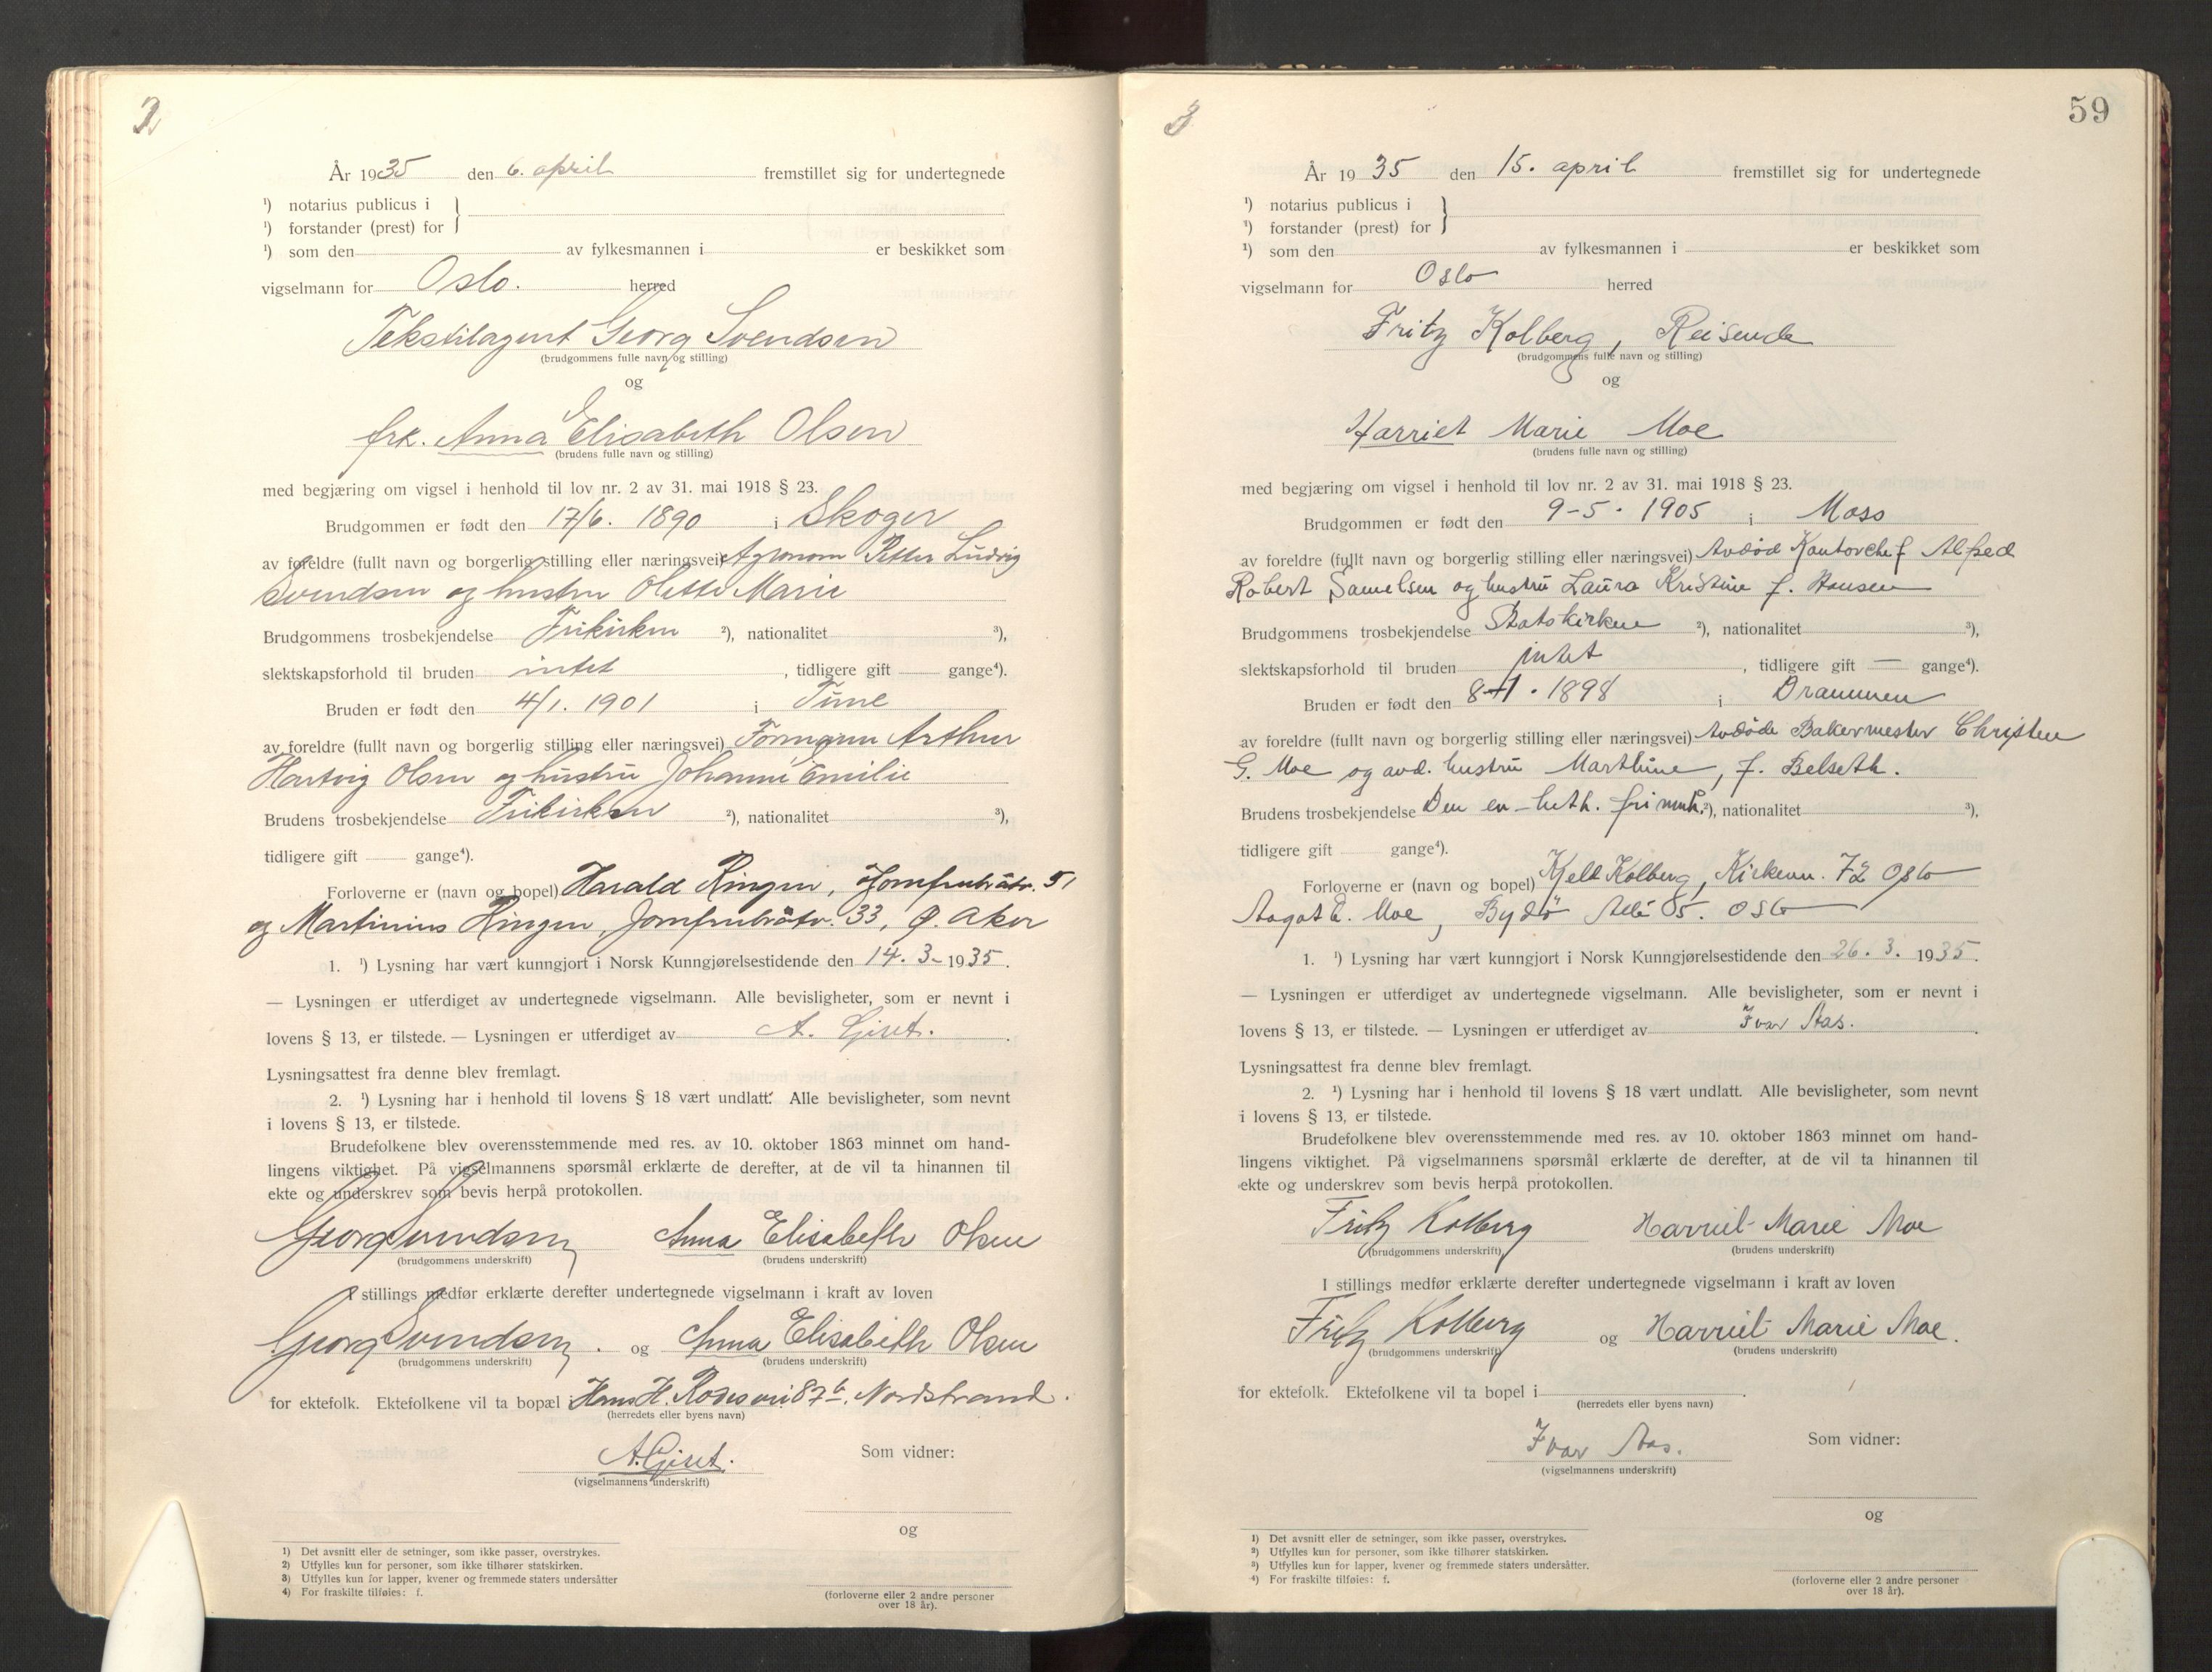 2
År 1935 den 6. april fremstillet sig for undertegnede
¹) notarius publicus i }
¹) forstander (prest) for
¹) som den av fylkesmannen i er beskikket som
vigselmann for Oslo. herred
Tekstilagent Georg Svendsen
(brudgommens fulle navn og stilling)
og
frk. Anna Elisabeth Olsen
(brudens fulle navn og stilling)
med begjæring om vigsel i henhold til lov nr. 2 av 31. mai 1918 § 23.
Brudgommen er født den 17/6. 1890 i Skoger
av foreldre (fullt navn og borgerlig stilling eller næringsvei) Agronom Petter Ludvig
Svendsen og hustru Olette Marie
Brudgommens trosbekjendelse Frikirken ²), nationalitet ³),
slektskapsforhold til bruden intet , tidligere gift gange⁴).
Bruden er født den 4/1. 1901 i Tune
av foreldre (fullt navn og borgerlig stilling eller næringsvei) Formann Arthur
Hartvig Olsen og hustru Johanne Emilie
Brudens trosbekjendelse Frikirken ²), nationalitet ³),
tidligere gift gange⁴).
Forloverne er (navn og bopel) Harald Ringen, Jomfrubråtv. 51
og Martinius Ringen, Jomfrubråtv. 33, Ø. Aker
1. ¹) Lysning har vært kunngjort i Norsk Kunngjørelsestidende den 14. 3- 1935.
— Lysningen er utferdiget av undertegnede vigselmann. Alle bevisligheter, som er nevnt i
lovens § 13, er tilstede. — Lysningen er utferdiget av A. Gjset.
Lysningsattest fra denne blev fremlagt.
2. ¹) Lysning har i henhold til lovens § 18 vært undlatt. Alle bevisligheter, som nevnt
i lovens § 13, er tilstede.
Brudefolkene blev overensstemmende med res. av 10. oktober 1863 minnet om hand-
lingens viktighet. På vigselmannens spørsmål erklærte de derefter, at de vil ta hinannen til
ekte og underskrev som bevis herpå protokollen.
Georg Svendsen Anna Elisabeth Olsen
(brudgommens underskrift) (brudens underskrift)
I stillings medfør erklærte derefter undertegnede vigselmann i kraft av loven
Georg Svendsen. og Anna Elisabeth Olsen
(brudgommens underskrift) (brudens underskrift)
for ektefolk. Ektefolkene vil ta bopæl i Hans H. Rodes vei 87 b. Nordstrand.
(herredets eller byens navn)
A. Gjset. Som vidner:
(vigselmannens underskrift)
og
1) Det avsnitt eller de setninger, som ikke passer, overstrykes.
2) Utfylles kun for personer, som ikke tilhører statskirken.
3) Utfylles kun for lapper, kvener og fremmede staters undersåtter
4) For fraskilte tilføies: f.
(forloverne eller 2 andre personer
over 18 år).
3
59
År 1935 den 15. april fremstillet sig for undertegnede
¹) notarius publicus i }
¹) forstander (prest) for
¹) som den av fylkesmannen i er beskikket som
vigselmann for Oslo herred
Fritz Kolberg, Reisende
(brudgommens fulle navn og stilling)
og
Harriet Marie Moe
(brudens fulle navn og stilling)
med begjæring om vigsel i henhold til lov nr. 2 av 31. mai 1918 § 23.
Brudgommen er født den 9-5. 1905 i Moss
av foreldre (fullt navn og borgerlig stilling eller næringsvei) Avdød Kontorchef Alfred
Robert Samelsen og hustru Laura Kristine f. Hansen
Brudgommens trosbekjendelse Statskirken ²), nationalitet ³),
slektskapsforhold til bruden intet , tidligere gift — gange⁴).
Bruden er født den 8-1. 1898 i Drammen
av foreldre (fullt navn og borgerlig stilling eller næringsvei) Avdøde Bakermester Christen
G. Moe og avd. hustru Marthine, f. Belseth.
Brudens trosbekjendelse Den ev-luth. frimnh. ²), nationalitet ³),
tidligere gift gange⁴).
Forloverne er (navn og bopel) Kjell Kolberg, Kirkevn. 72 Oslo
Aagot E. Moe, Bydø Allé 85. Oslo
1. ¹) Lysning har vært kunngjort i Norsk Kunngjørelsestidende den 26. 3. 1935.
— Lysningen er utferdiget av undertegnede vigselmann. Alle bevisligheter, som er nevnt i
lovens § 13, er tilstede. — Lysningen er utferdiget av Ivar Aas.
Lysningsattest fra denne blev fremlagt.
2. ¹) Lysning har i henhold til lovens § 18 vært undlatt. Alle bevisligheter, som nevnt
i lovens § 13, er tilstede.
Brudefolkene blev overensstemmende med res. av 10. oktober 1863 minnet om hand-
lingens viktighet. På vigselmannens spørsmål erklærte de derefter, at de vil ta hinannen til
ekte og underskrev som bevis herpå protokollen.
Fritz Kolberg Harriet Marie Moe
(brudgommens underskrift) (brudens underskrift)
I stillings medfør erklærte derefter undertegnede vigselmann i kraft av loven
Fritz Kolberg og Harriet Marie Moe.
(brudgommens underskrift) (brudens underskrift)
for ektefolk. Ektefolkene vil ta bopel i .
(herredets eller byens navn)
Ivar Aas. Som vidner:
(vigselmannens underskrift)
og
1) Det avsnitt eller de setninger, som ikke passer, overstrykes.
2) Utfylles kun for personer, som ikke tilhører statskirken.
3) Utfylles kun for lapper, kvener og fremmede staters undersåtter.
4) For fraskilte tilføies: f.
(forloverne eller 2 andre personer
over 18 år).